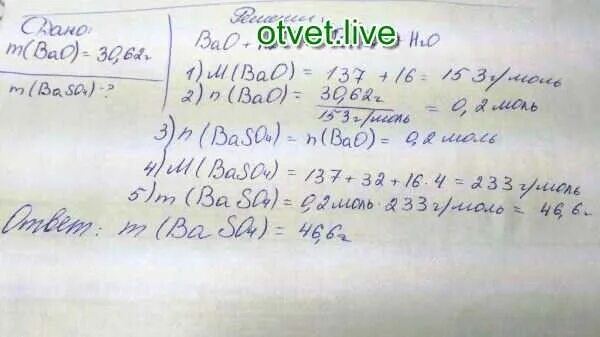 Дано:
m(BaO) = 30,62г
m(BaSO4)-?
Решение:
otvet.live
BaO + + H2O
1) M(BaO) = 137 + 16 = 153г/моль
2) n(BaO) = 30,62г / 153г/моль = 0,2 моль
3) n(BaSO4) = n(BaO) = 0,2 моль
4) M(BaSO4) = 137 + 32 + 16·4 = 233г/моль
5) m(BaSO4) = 0,2 моль · 233г/моль = 46,6г
Ответ: m(BaSO4) = 46,6г